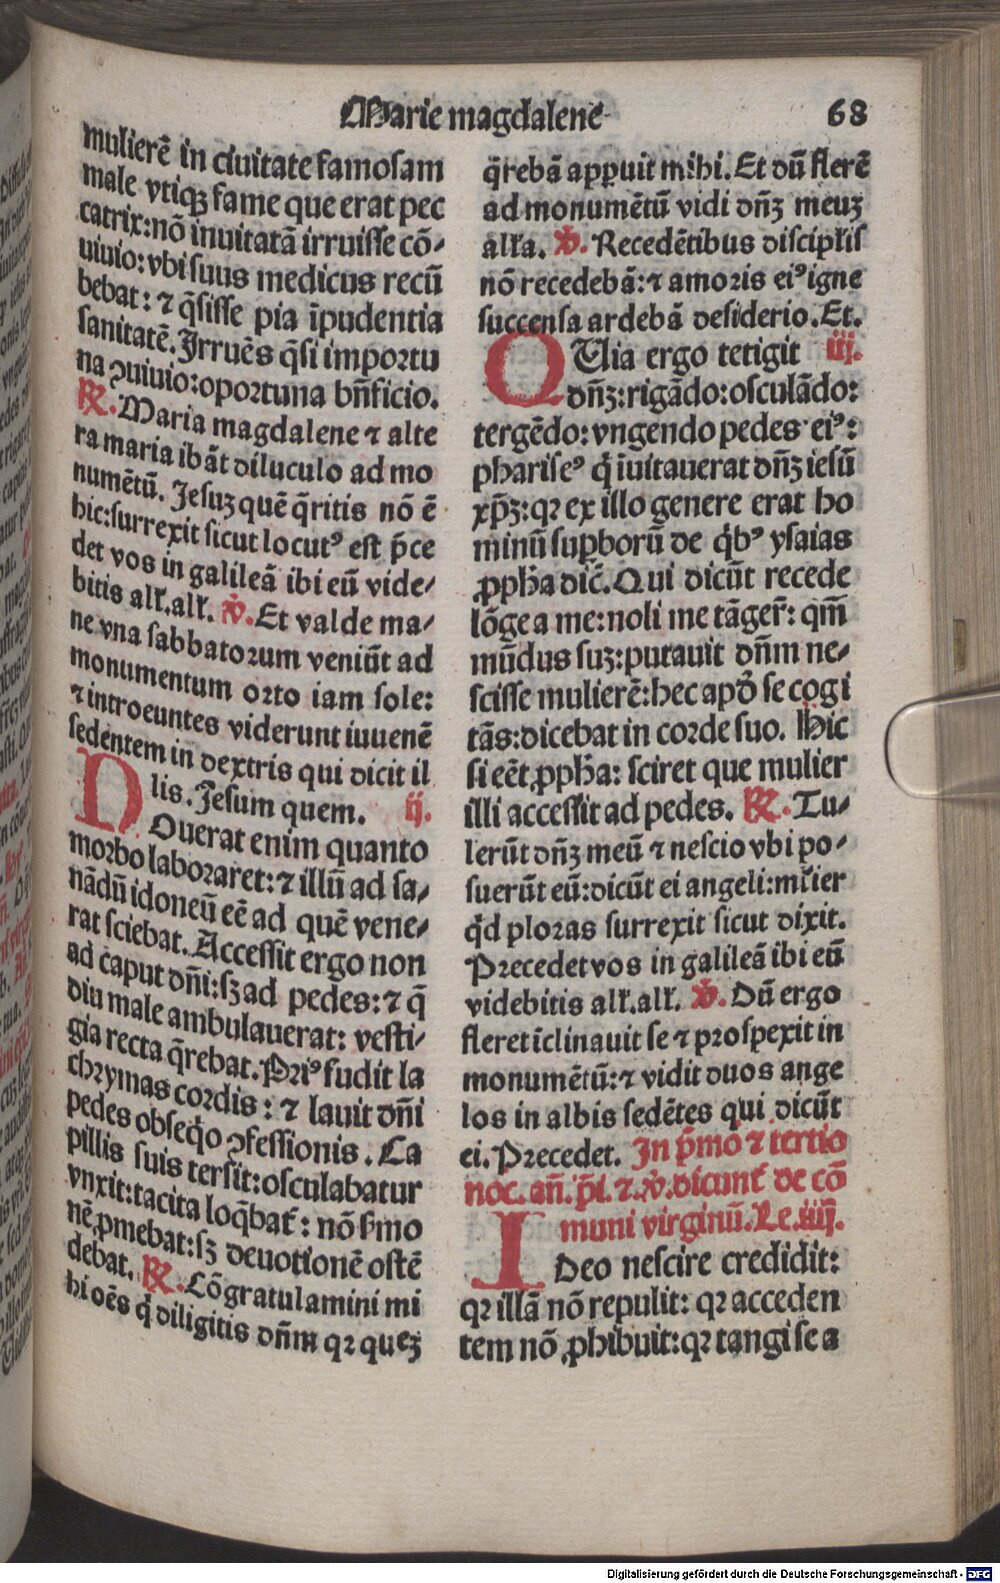 Marie magdalene
68
mulierē in ciuitate famosam
male vtiqꝫ fame que erat pec
catrix:nō inuitatā irruisse cō⸗
uiuio:vbi suus medicus recū
bebat: ⁊ q̄sisse pia īpudentia
sanitatē. Irruēs q̄si importu
na ꝯuiuio:oportuna bn̄ficio.
℟. Maria magdalene ⁊ alte
ra maria ibāt diluculo ad mo
numētū. Jesuꝫ quē q̄ritis nō ē
hic:surrexit sicut locutꝰ est p̄ce
det vos in galileā ibi eū vide⸗
bitis alł.alł. ℣. Et valde ma⸗
ne vna sabbatoꝛum veniūt ad
monumentum oꝛto iam sole:
⁊ introeuntes viderunt iuuenē
sedentem in dextris qui dicit il
lis. Jesum quem. ij.
NOuerat enim quanto
moꝛbo laboꝛaret:⁊ illū ad sa⸗
nādū idoneū eē ad quē vene⸗
rat sciebat. Accessit ergo non
ad caput dn̄i:sꝫ ad pedes:⁊ q̄
diu male ambulauerat: vesti⸗
gia recta q̄rebat. Pꝛiꝰ fudit la
chꝛymas coꝛdis: ⁊ lauit dn̄i
pedes obseq̇o ꝯfessionis. Ca
pillis suis tersit:osculabatur
vnxit:tacita loq̄bať: nō s̄mo
nē ꝓmebat:sꝫ deuotionē ostē
debat. ℟. Cōgratulamini mi
hi oēs q̇ diligitis dn̄m qꝛ queꝫ
q̄rebā apꝑuit mihi. Et dū flerē
ad monumētū vidi dn̄ꝫ meuꝫ
alła. ℣. Recedētibus discipłis
nō recedebā:⁊ amoꝛis eiꝰ igne
succensa ardebā desiderio. Et.
QUia ergo tetigit iij.
dn̄ꝫ:rigādo:osculādo:
tergēdo:vngendo pedes eiꝰ:
phariseꝰ q̇ īuitauerat dn̄ꝫ iesū
xp̄ꝫ:qꝛ ex illo genere erat ho
minū suꝑboꝛū de q̇bꝰ ysaias
ꝓpħa dic̄. Qui dicūt recede
lōge a me:noli me tāgeř: qm̄
mūdus suꝫ:putauit dn̄m ne⸗
scisse mulierē:hec apð se cogi
tās:dicebat in coꝛde suo. Hic
si eēt ꝓpħa: sciret que mulier
illi accessit ad pedes. ℟. Tu⸗
lerūt dn̄ꝫ meū ⁊ nescio vbi po⸗
suerūt eū:dicūt ei angeli:młier
q̇d ploꝛas surrexit sicut dixit.
Pꝛecedet vos in galileā ibi eū
videbitis alł.alł. ℣. Dū ergo
fleret īclinauit se ⁊ pꝛospexit in
monumētū:⁊ vidit duos ange
los in albis sedētes qui dicūt
ei. Pꝛecedet. In p̄mo ⁊ tertio
noc. añ. p̄s. ⁊.℣. dicunť de cō
muni virginū. Le.iiij.
IDeo nescire credidit:
qꝛ illā nō repulit: qꝛ acceden
tem nō ꝓhibuit:qꝛ tangi se a
Digitalisierung gefördert durch die Deutsche Forschungsgemeinschaft - DFG